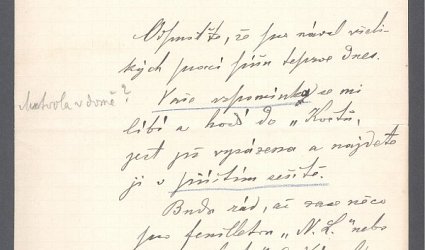 Odpusťte, že pro nával všeli-
kých prací píšu teprve dnes.
Vaše vzpomínka se mi
líbí a hodí do „Květů,
jest již vysázena a najdete
ji v příštím sešitě.
Budu rád, až zase něco
pro feuilleton „N. L." nebo